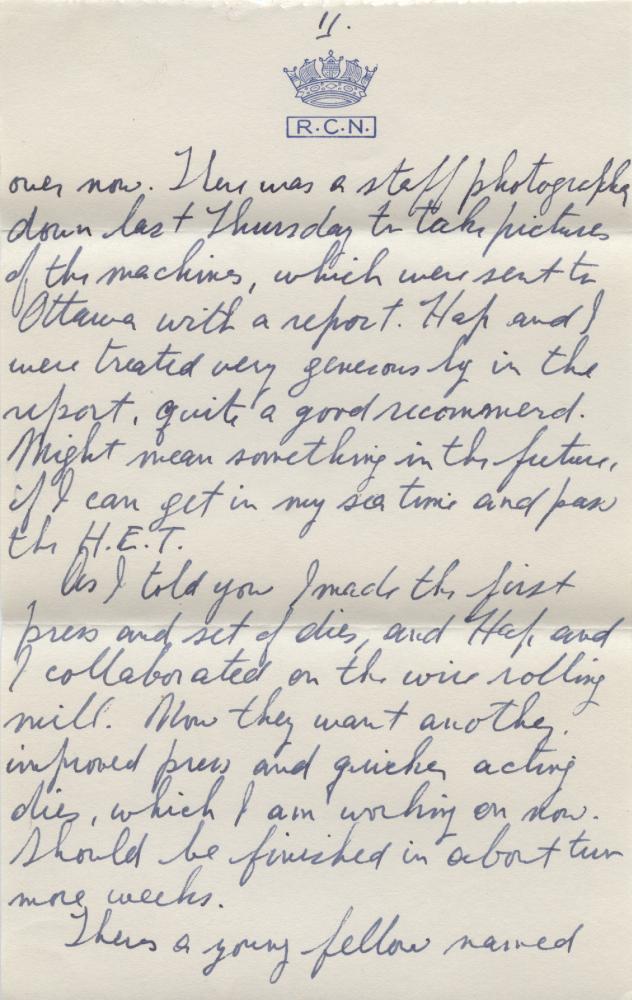 11.
R.C.N.
over now. There was a staff photographer
down last Thursday to take pictures
of the machines, which were sent to
Ottawa with a report. Hap and I
were treated very generously in the
report, quite a good recommend.
Might mean something in the future,
if I can get in my sea time and pass
the H.E.T.
As I told you I made the first
press and set of dies, and Hap and
I collaborated on the wire rolling
mill. Now they want another,
improved press and quicker acting
dies, which I am working on now.
Should be finished in about two
more weeks.
Theres a young fellow named